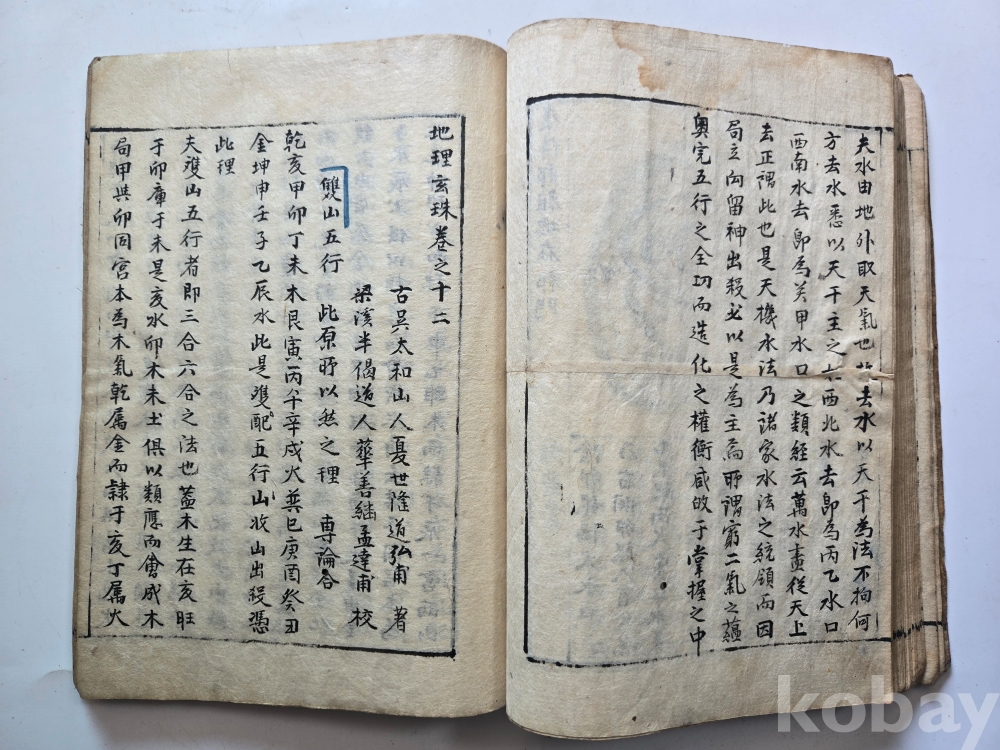 夫水由地外取天氣也故去水以天干為法不拘何
方去水悉以天干主之如西北水去即為丙乙水口
西南水去即為癸甲水口之類經云萬水盡從天上
去正謂此也是天機水法乃諸家水法之統領而因
局立向留神出殺必以是為主焉所謂窮二氣之蘊
奧完五行之全功而造化之權衡咸攸于掌握之中
地理玄珠卷之十二
古吳太和山人夏世隆道弘甫 著
梁溪半偈道人華善継孟達甫 校
雙山五行 此原所以然之理 專論合
乾亥甲卯丁未木艮寅丙午辛戌火巽巳庚酉癸丑
金坤申壬子乙辰水此是雙配五行山收山出殺憑
此理
夫雙山五行者即三合六合之法也蓋木生在亥旺
于卯庫于未是亥水卯木未土俱以類應而會成木
局甲與卯同宮本為木氣乾屬金而隸于亥丁属火
kobay